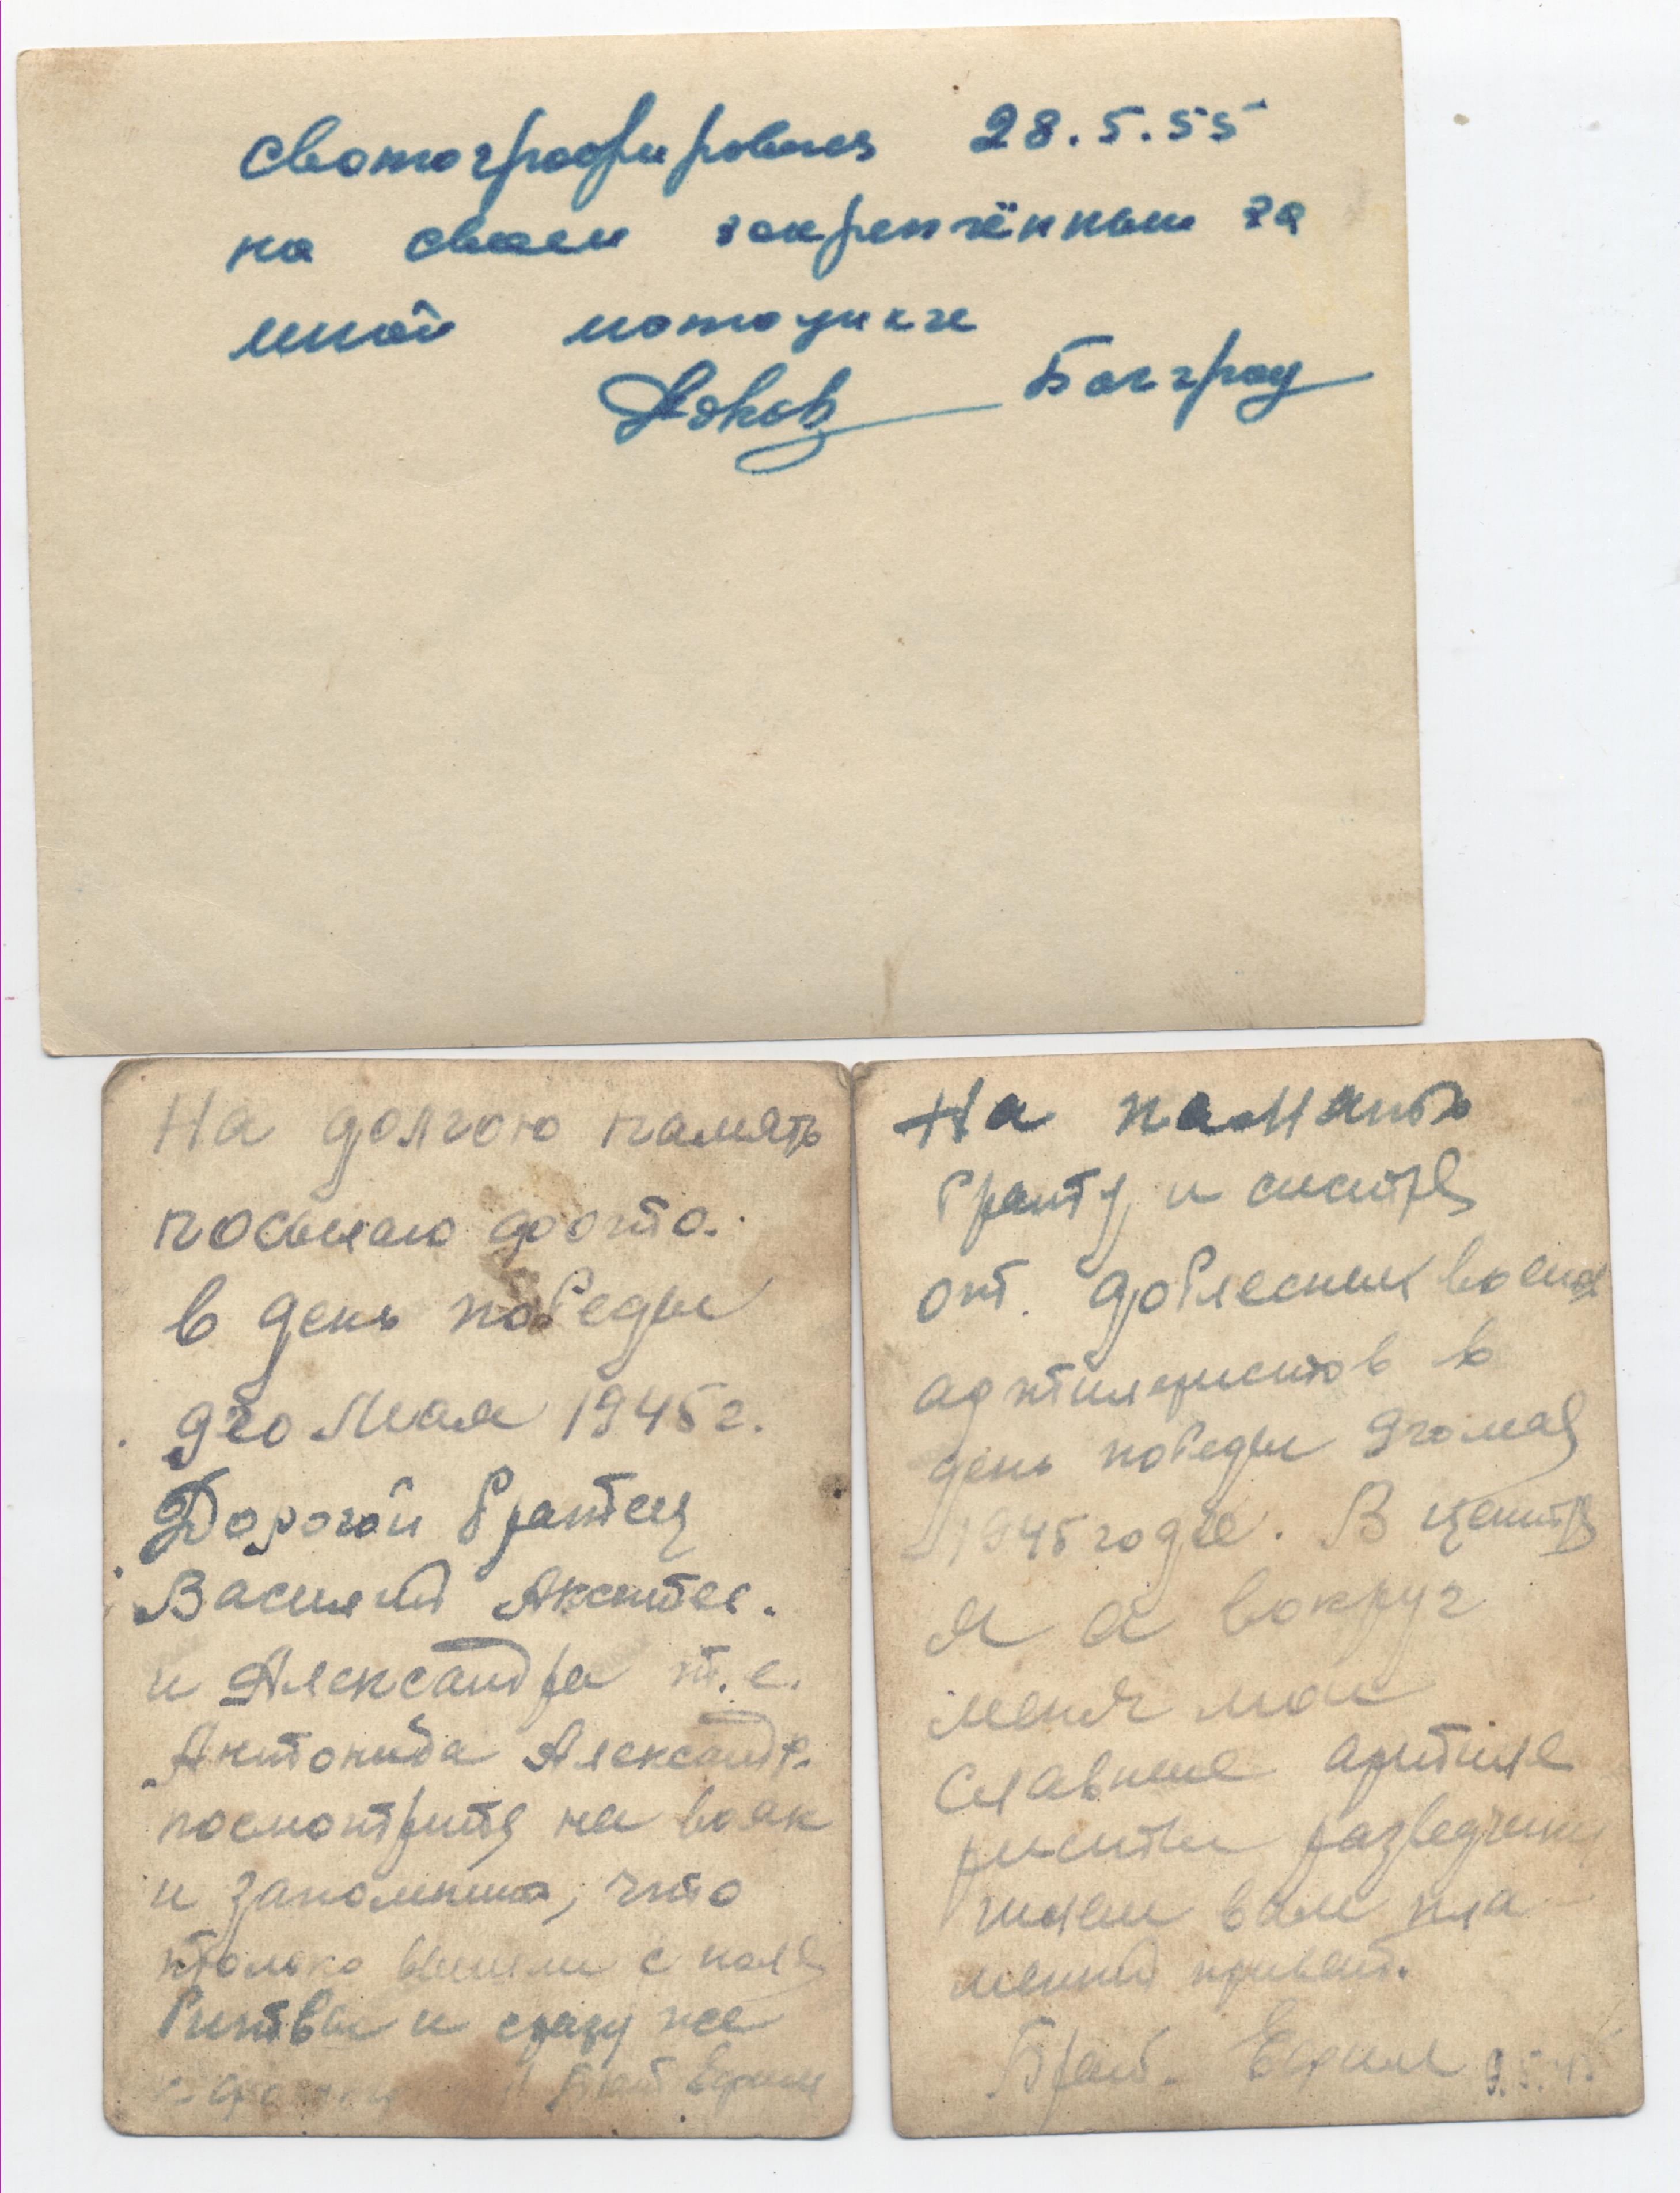 сфотографировался 28.5.55
на своем закреплённым за
мной мотоцикле
Боград
На долгою память
посылаю фото.
в день победы
9го Мая 1945 г.
Дорогой братец
Василий Аксит
и Александра т.е.
Антонида Александр.
посмотрите на вояк
и запомните, что
только вышли с поля
битвы и сразу же
Брат Ефим
На память
брату и систре
от доблесных воена
артилеристов в
день победы 9го мая
1945 годге. В центре
я а вокруг
меня мои
славные артиле
ристы разведчики
шлем вам пла
менный привет.
Брат. Ефим 9.5.